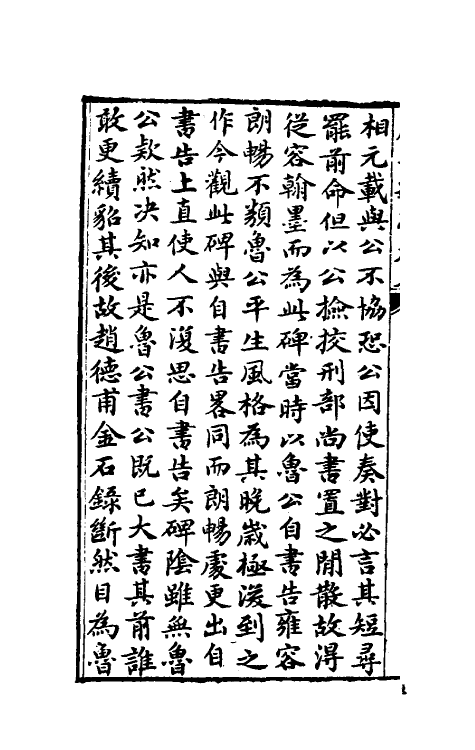 相元載與公不協恐公因使奏對必言其短尋
罷前命但以公撿挍刑部尚書置之閒散故淂
從容翰墨而為此碑當時以魯公自書告雍容
朗暢不類魯公平生風格為其晚歲極深到之
作今觀此碑與自書告畧同而朗暢處更出自
書告上直使人不復思自書告矣碑陰雖無魯
公款然决知亦是魯公書公既已大書其前誰
敢更續貂其後故趙德甫金石錄斷然目為魯